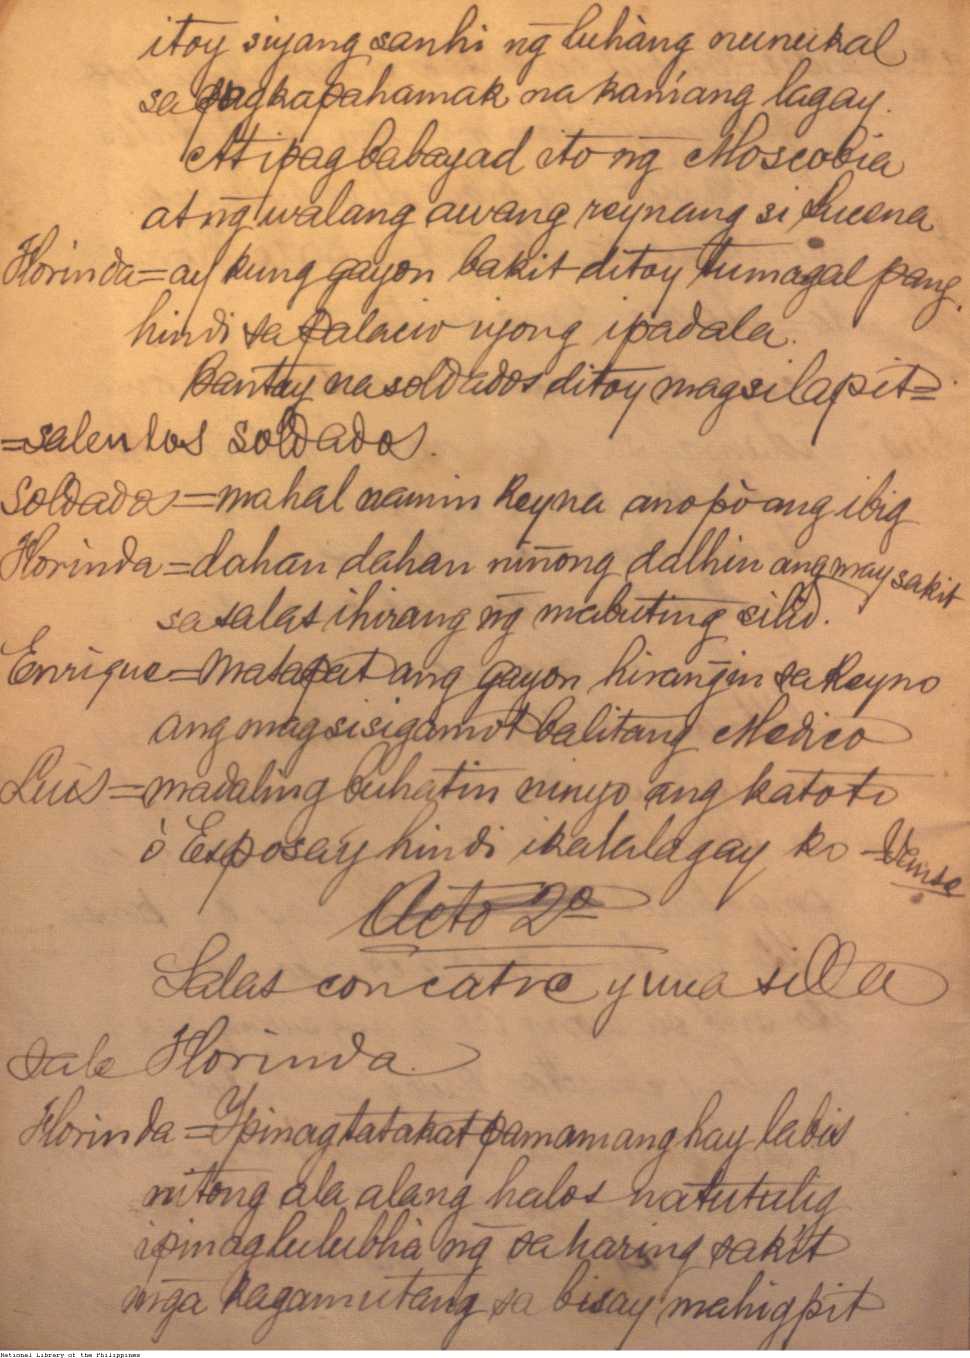 itoy siyang sanhi ng̃ luhàng nunukal
sa pagkapahamak na kaniang lagay.
At ipagbabayad ito ng̃ Moscobia
at ng̃ walang awang reynang si Lucena
Florinda=ay kung gayon bakit ditoy tumagal pang
hindi sa palacio iyong ipadala.
bantay na soldados ditoy magsilapit=
=salen los soldados.
Soldados=mahal namin Reyna ano pò ang ibig
Florinda=dahan dahan niñong dalhin ang may sakit
sa salas ihirang ng̃ mabuting silid.
Enrique=Matapat ang gayon hirang̃in sa Reyno
ang magsisigamot balitang Medico
Luis=madaling buhatin ninyo ang katoto
ó Esposay hindi ikalalagay ko =Vanse
Acto 2º
Salas con catre y una silla
Sale Florinda.
Florinda=Ypinagtatakat pamamanghay labis
nitong ala alang halos natutulig
ipinaglulubhà ng̃ sa haring sakit
mg̃a kagamutang sa bisay mahigpit
National Library of the Philippines